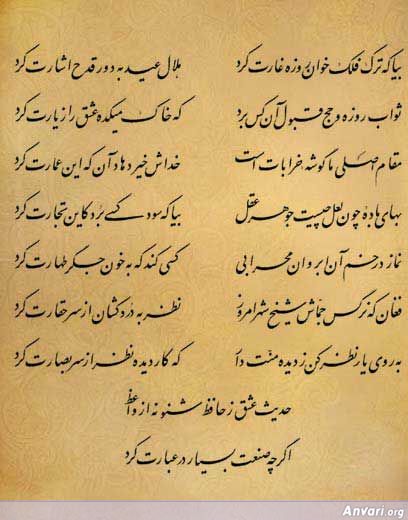 بیا که ترک فلک خوان روزه غارت کرد هلال عید به دور قدح اشارت کرد
ثواب روزه و حج قبول آن کس برد که خاک میکده عشق را زیارت کرد
مقام اصلی ما گوشه خرابات است خداش خیر دهاد آن که این عمارت کرد
بهای باده چون لعل چیست جوهر عقل بیا که سود کسی برد کاین تجارت کرد
نماز در خم آن ابروان محرابی کسی کند که به خون جگر طهارت کرد
فغان که نرگس جماش شیخ شهر امروز نظر به دردکشان از سر حقارت کرد
به روی یار نظر کن ز دیده منت دار که کار دیده نظر از سر بصارت کرد
حدیث عشق ز حافظ شنو نه از واعظ
اگرچه صنعت بسیار در عبارت کرد
Anvari.org